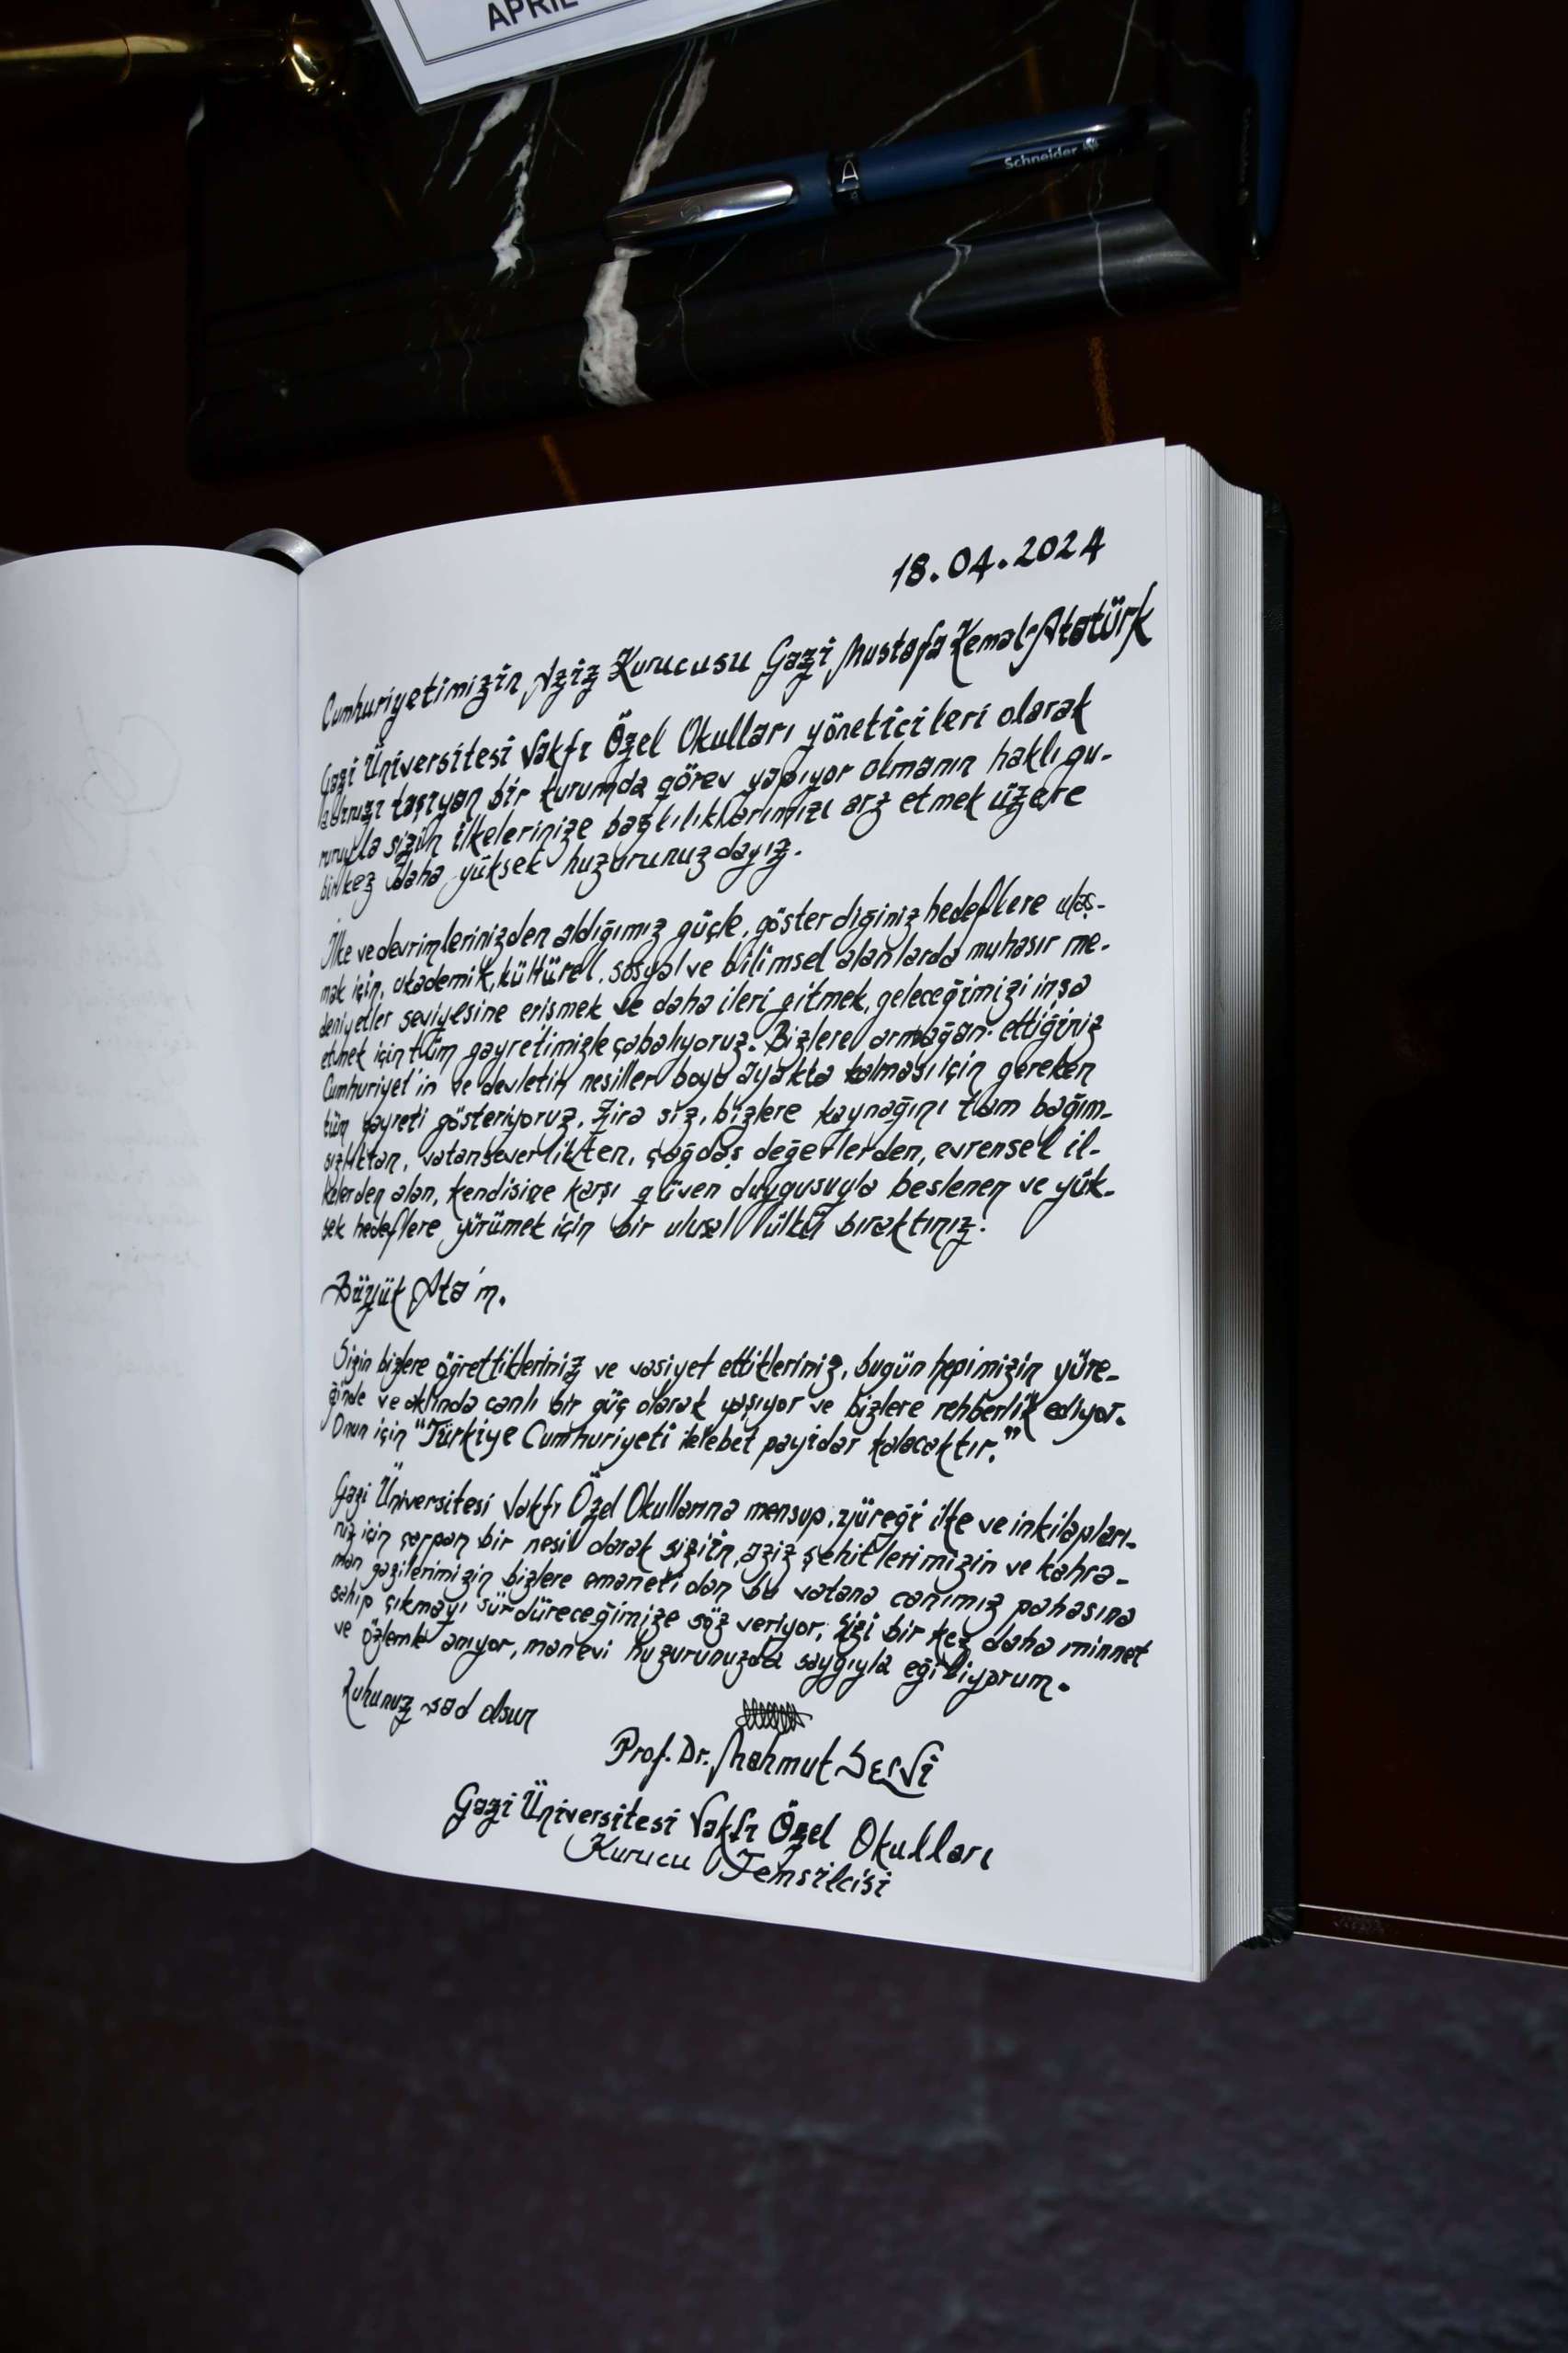 APRIL
A
Schneider
18.04.2024
Cumhuriyetimizin Aziz Kurucusu Gazi Mustafa Kemal Atatürk
Gazi Üniversitesi Vakfı Özel Okulları yöneticileri olarak
taşıyan bir kurumda görev yapıyor olmanın haklı gu-
ruruyla sizin ilkelerinize bağlılıklarımızı arz etmek üzere
bir kez daha yüksek huzurunuzdayız.
İlke ve devrimlerinizden aldığımız güçle, gösterdiğiniz hedeflere ulaş-
mak için, akademik, kültürel, sosyal ve bilimsel alanlarda muhasır me-
deniyetler seviyesine erişmek ve daha ileri gitmek, geleceğimizi inşa
etmek için tüm gayretimizle çabalıyoruz. Bizlere armağan ettiğiniz
Cumhuriyet'in ve devletin nesiller boyu ayakta kalması için gereken
tüm gayreti gösteriyoruz. Zira siz, bizlere kaynağını tam bağım-
sızlıktan, vatanseverlikten, çağdaş değerlerden, evrensel il-
kelerden alan, kendisine karşı güven duygusuyla beslenen ve yük-
sek hedeflere yürümek için bir ulusal ülkü bıraktınız.
Büyük Ata'm.
Sizin bizlere öğrettikleriniz ve vasiyet ettikleriniz, bugün hepimizin yüre-
ğinde ve aklında canlı bir güç olarak yaşıyor ve bizlere rehberlik ediyor.
Onun için "Türkiye Cumhuriyeti ilelebet payidar kalacaktır."
Gazi Üniversitesi Vakfı Özel Okullarına mensup, yüreği ilke ve inkilapları-
nız için çarpan bir nesil olarak sizin, aziz şehitlerimizin ve kahra-
man gazilerimizin bizlere emaneti olan bu vatana canımız pahasına
sahip çıkmayı sürdüreceğimize söz veriyor, sizi bir kez daha minnet
ve özlemle anıyor, manevi huzurunuzda saygıyla eğiliyorum.
Ruhunuz şad olsun
Prof. Dr. Mahmut SELVİ
Gazi Üniversitesi Vakfı Özel Okulları
Kurucu Temsilcisi